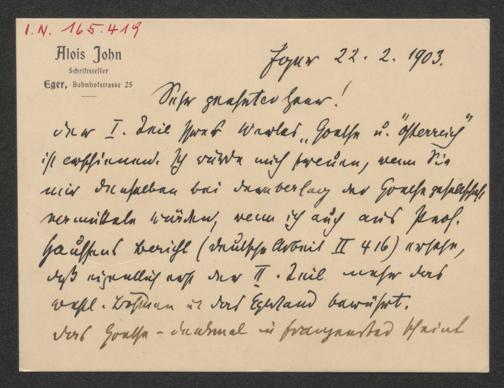 I.N. 165.419
Alois John
Schriftsteller
Eger, Bahnhofstrasse 25
Eger 22. 2. 1903.
Sehr geehrter Herr!
der I. Teil Ihres Werkes „Goethe u. Österreich"
ist erschienen. Ich würde mich freuen, wenn Sie
mir denselben bei dem Verlag der Goethegesellschaft
vermitteln würden, wenn ich auch aus Prof.
Hauffens Bericht (deutsche Arbeit II 416) ersehe,
daß eigentlich erst der II. Teil mehr das
westl. Böhmen u das Egerland berührt.
das Goethe-denkmal in Franzensbad scheint